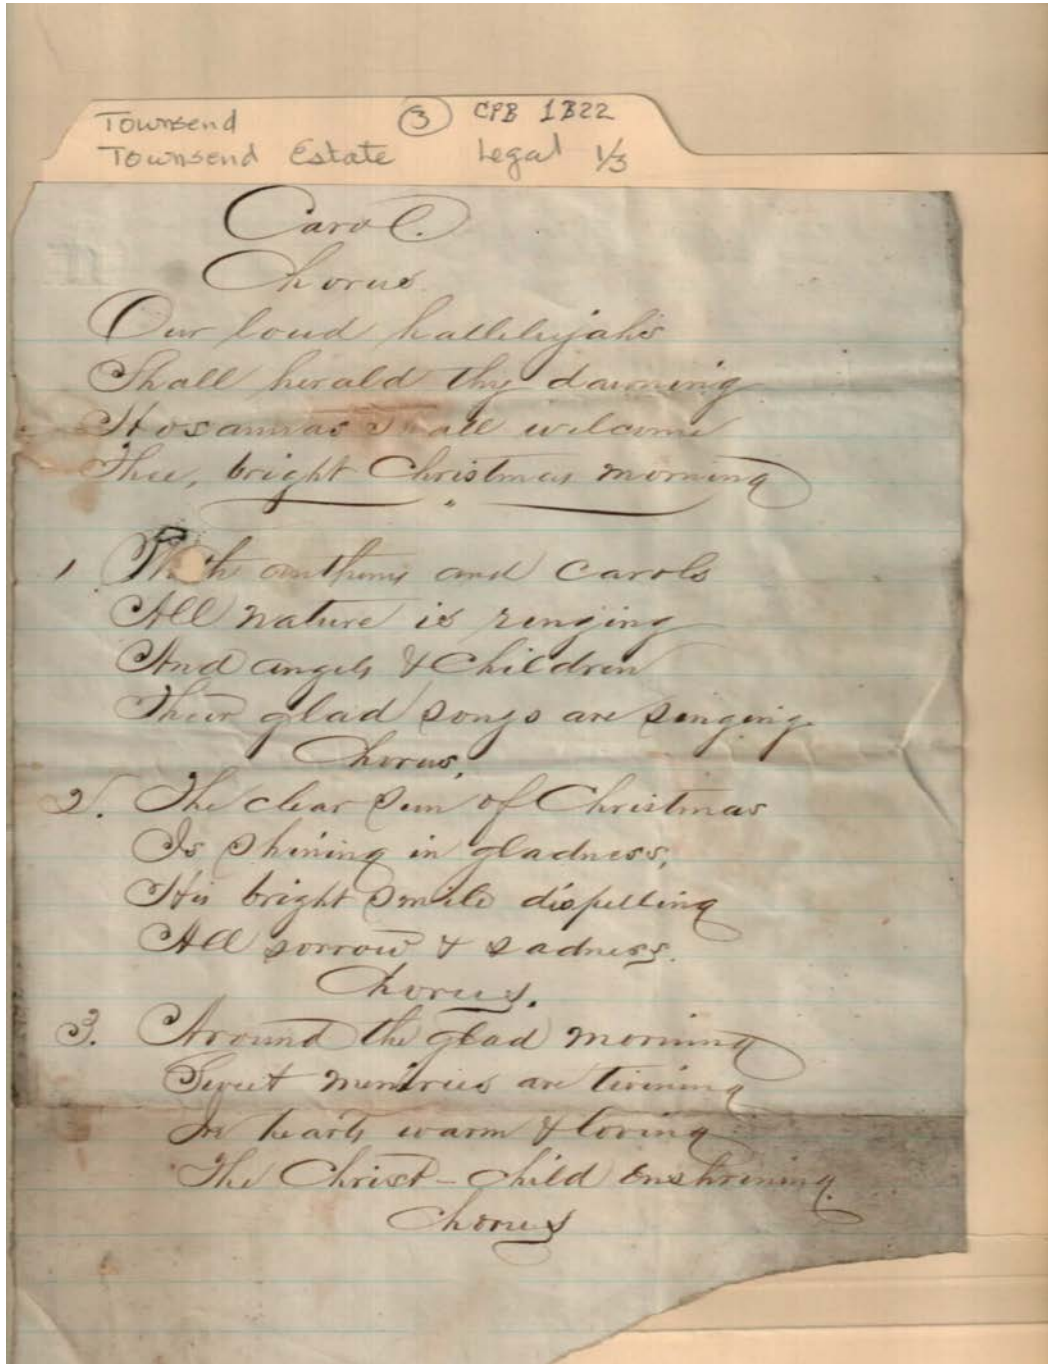 Townsend ③ CPB 1B22
Townsend Estate Legal 1/3
Carol.
Chorus
Our loud hallelujahs
Shall herald thy dawning
Hosannas shall welcome
Thee, bright Christmas morning
1 With anthems and carols
All nature is ringing
And angels & children
Their glad songs are singing.
Chorus.
2. The clear sun of Christmas
Is shining in gladness,
His bright smile dispelling
All sorrow & sadness.
Chorus.
3. Around the glad morning
Sweet memories are twining
In hearts warm & loving
The Christ-child enshrining.
Chorus